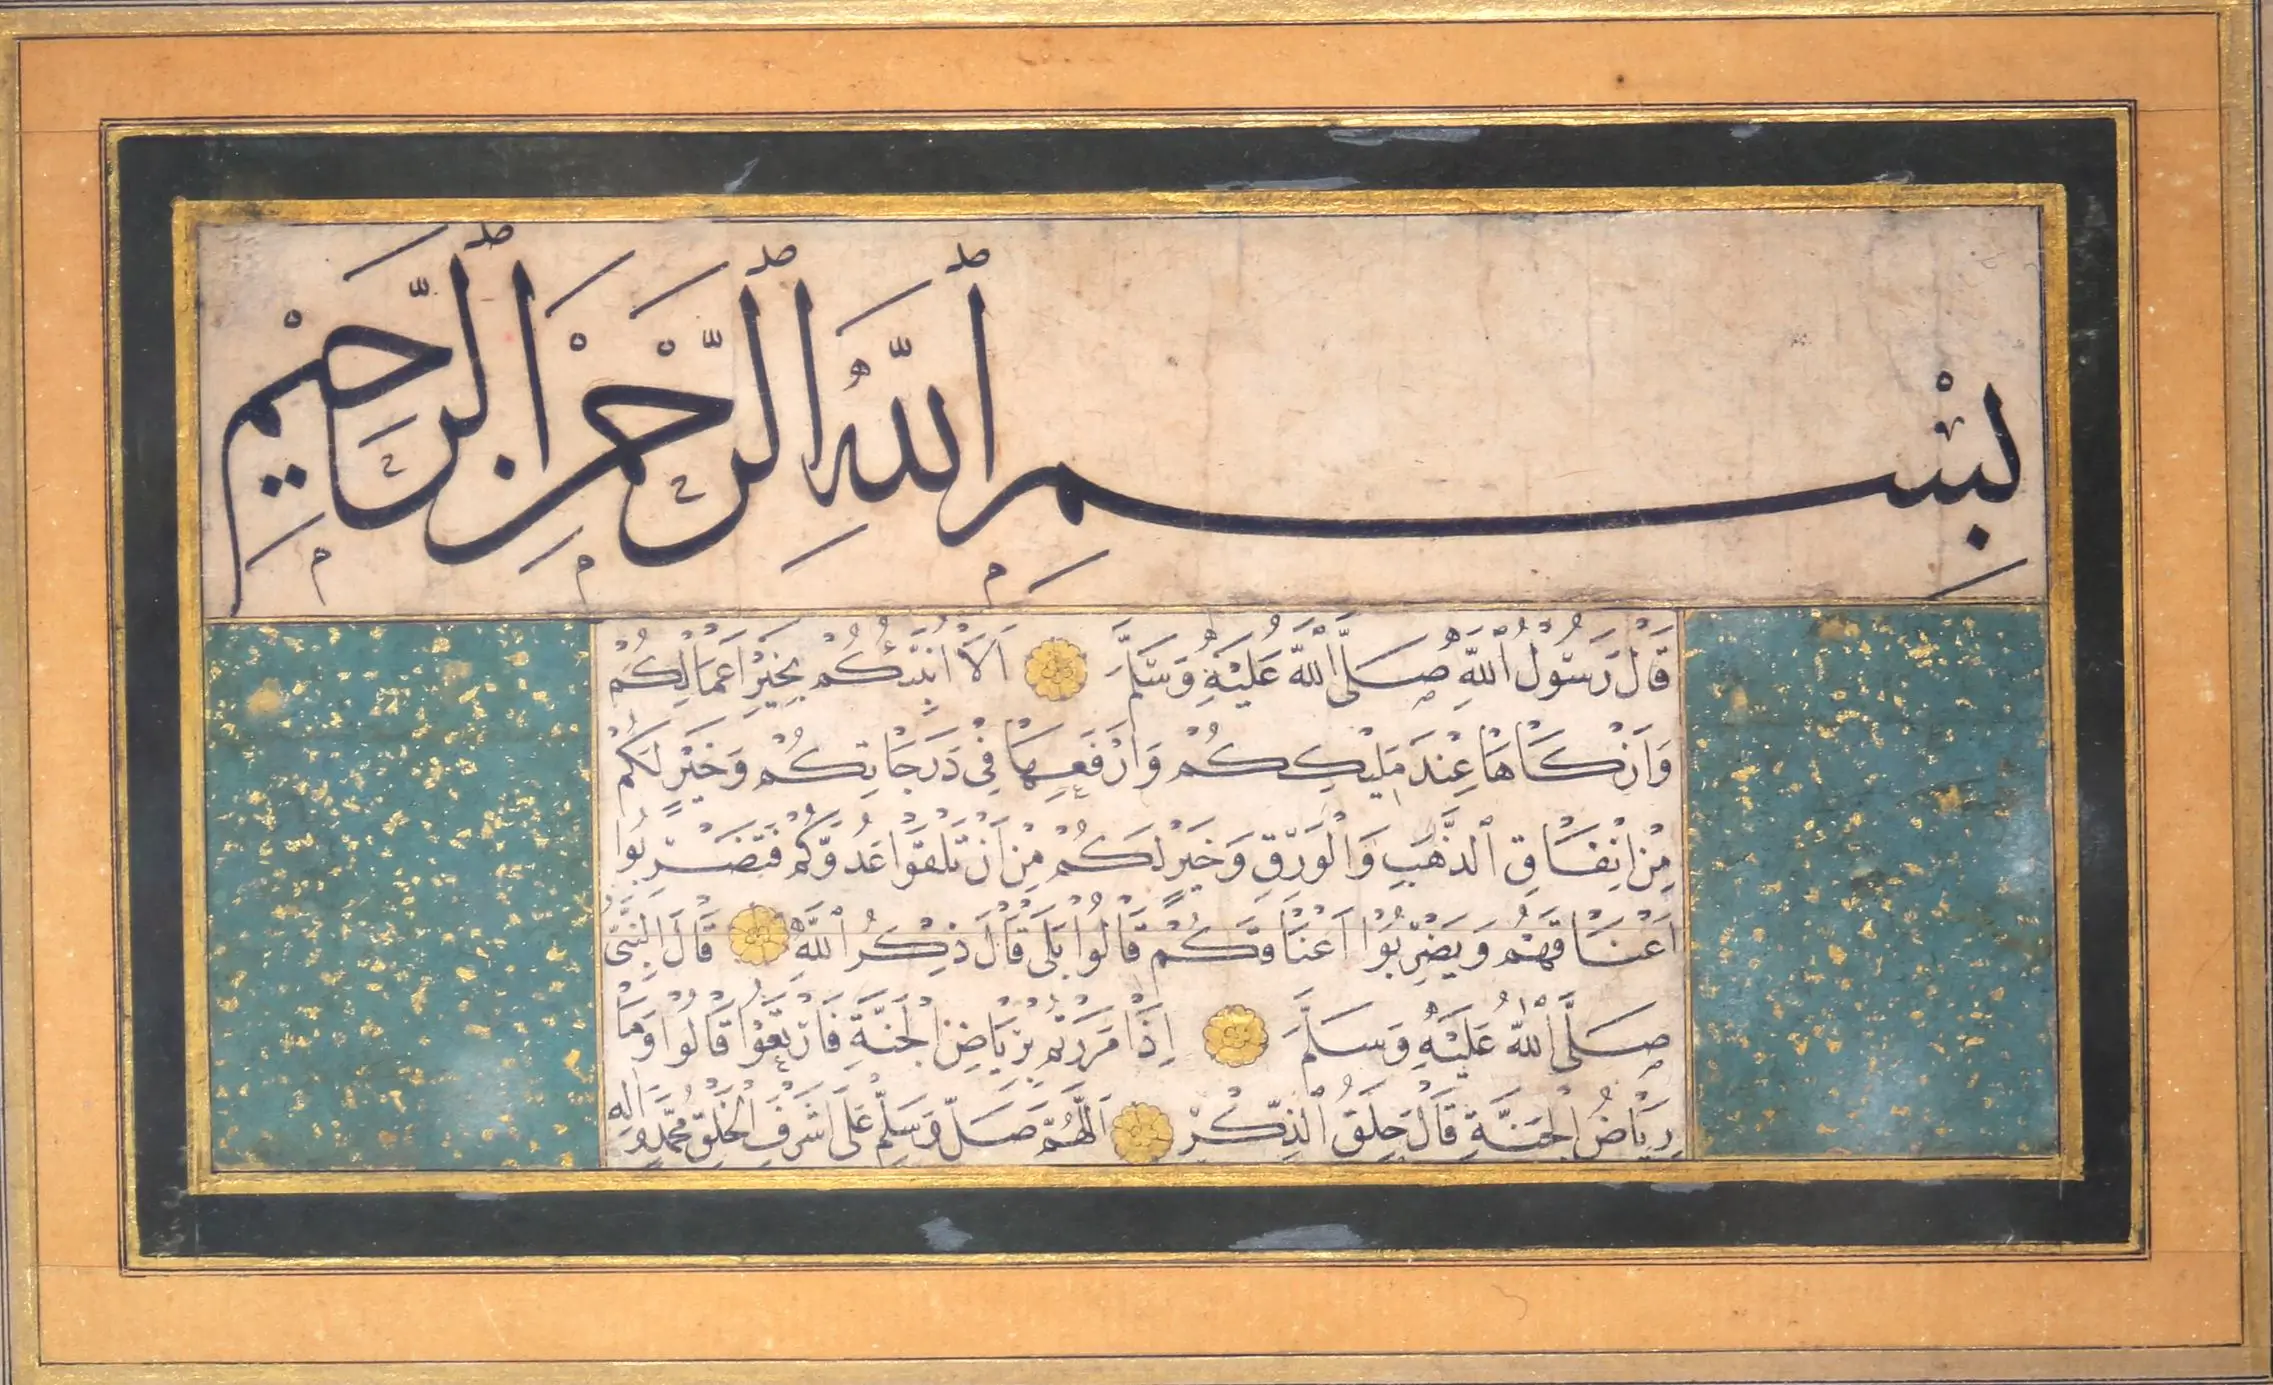 بِسْمِ ٱللَّهِ ٱلرَّحْمَنِ ٱلرَّحِيمِ
قَالَ رَسُولُ ٱللَّهِ صَلَّى ٱللَّهُ عَلَيْهِ وَسَلَّمَ اَلَا اُنَبِّئُكُمْ بِخَيْرِ اَعْمَالِكُمْ
وَاَزْكَاهَا عِنْدَ مَلِيكِكُمْ وَاَرْفَعِهَا فِي دَرَجَاتِكُمْ وَخَيْرٍ لَكُمْ
مِنْ اِنْفَاقِ ٱلذَّهَبِ وَالْوَرِقِ وَخَيْرٍ لَكُمْ مِنْ اَنْ تَلْقَوْا عَدُوَّكُمْ فَتَضْرِبُوا
اَعْنَاقَهُمْ وَيَضْرِبُوا اَعْنَاقَكُمْ قَالُوا بَلَى قَالَ ذِكْرُ ٱللَّهِ قَالَ النَّبِيُّ
صَلَّى ٱللَّهُ عَلَيْهِ وَسَلَّمَ اِذَا مَرَرْتُمْ بِرِيَاضِ الْجَنَّةِ فَارْتَعُوا قَالُوا وَمَا
رِيَاضُ الْجَنَّةِ قَالَ حِلَقُ ٱلذِّكْرِ اَللَّهُمَّ صَلِّ وَسَلِّمْ عَلَى اَشْرَفِ الْخَلْقِ مُحَمَّدٍ وَاٰلِهِ